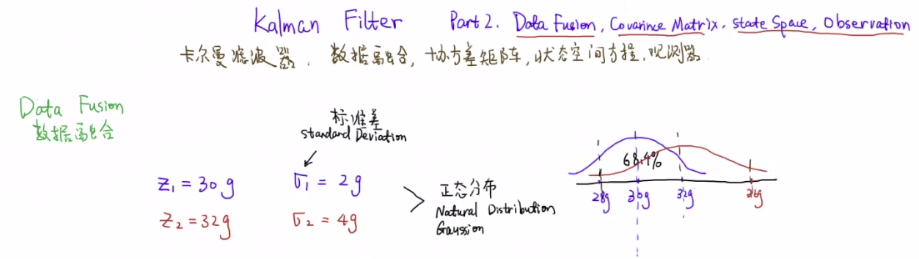 Kalman Filter Part 2. Data Fusion, Covarince Matrix, State Space, Observation
卡尔曼滤波器. 数据融合, 协方差矩阵, 状态空间方程, 观测器
Data Fusion
数据融合
标准差
Standard Deviation
z₁ = 30g σ₁ = 2g
z₂ = 32g σ₂ = 4g
正态分布
Natural Distribution
Gaussion
68.4%
28g 30g 32g 36g